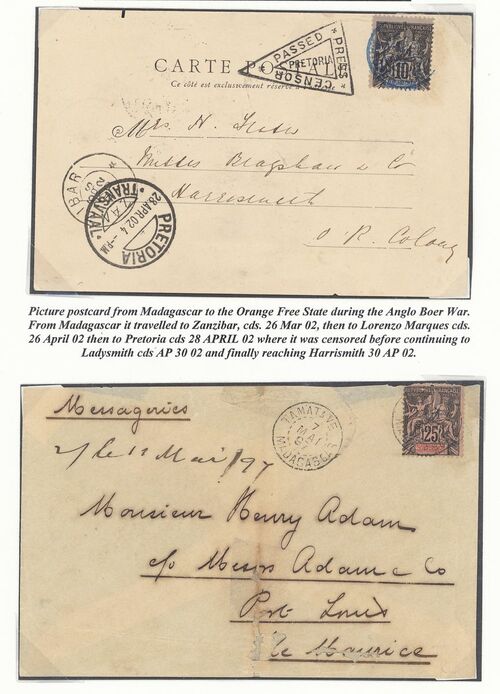 CARTE POSTALE
PASSED PRESS CENSOR
PRETORIA
Ce côté est exclusivement réservé à
RÉPUBLIQUE FRANÇAISE
10
Mrs. H.
Messrs
& Co
Harrismith
O. R. Colony
IBAR
PRETORIA
28 APR 02 4 - PM
TRANSVAAL
Picture postcard from Madagascar to the Orange Free State during the Anglo Boer War.
From Madagascar it travelled to Zanzibar, cds. 26 Mar 02, then to Lorenzo Marques cds.
26 April 02 then to Pretoria cds 28 APRIL 02 where it was censored before continuing to
Ladysmith cds AP 30 02 and finally reaching Harrismith 30 AP 02.
Messageries
TAMATAVE
7
MAI
MADAGASCAR
25
11 Mai /97
Monsieur Henry Adam
c/o Messrs Adam & Co
Port Louis
Ile Maurice